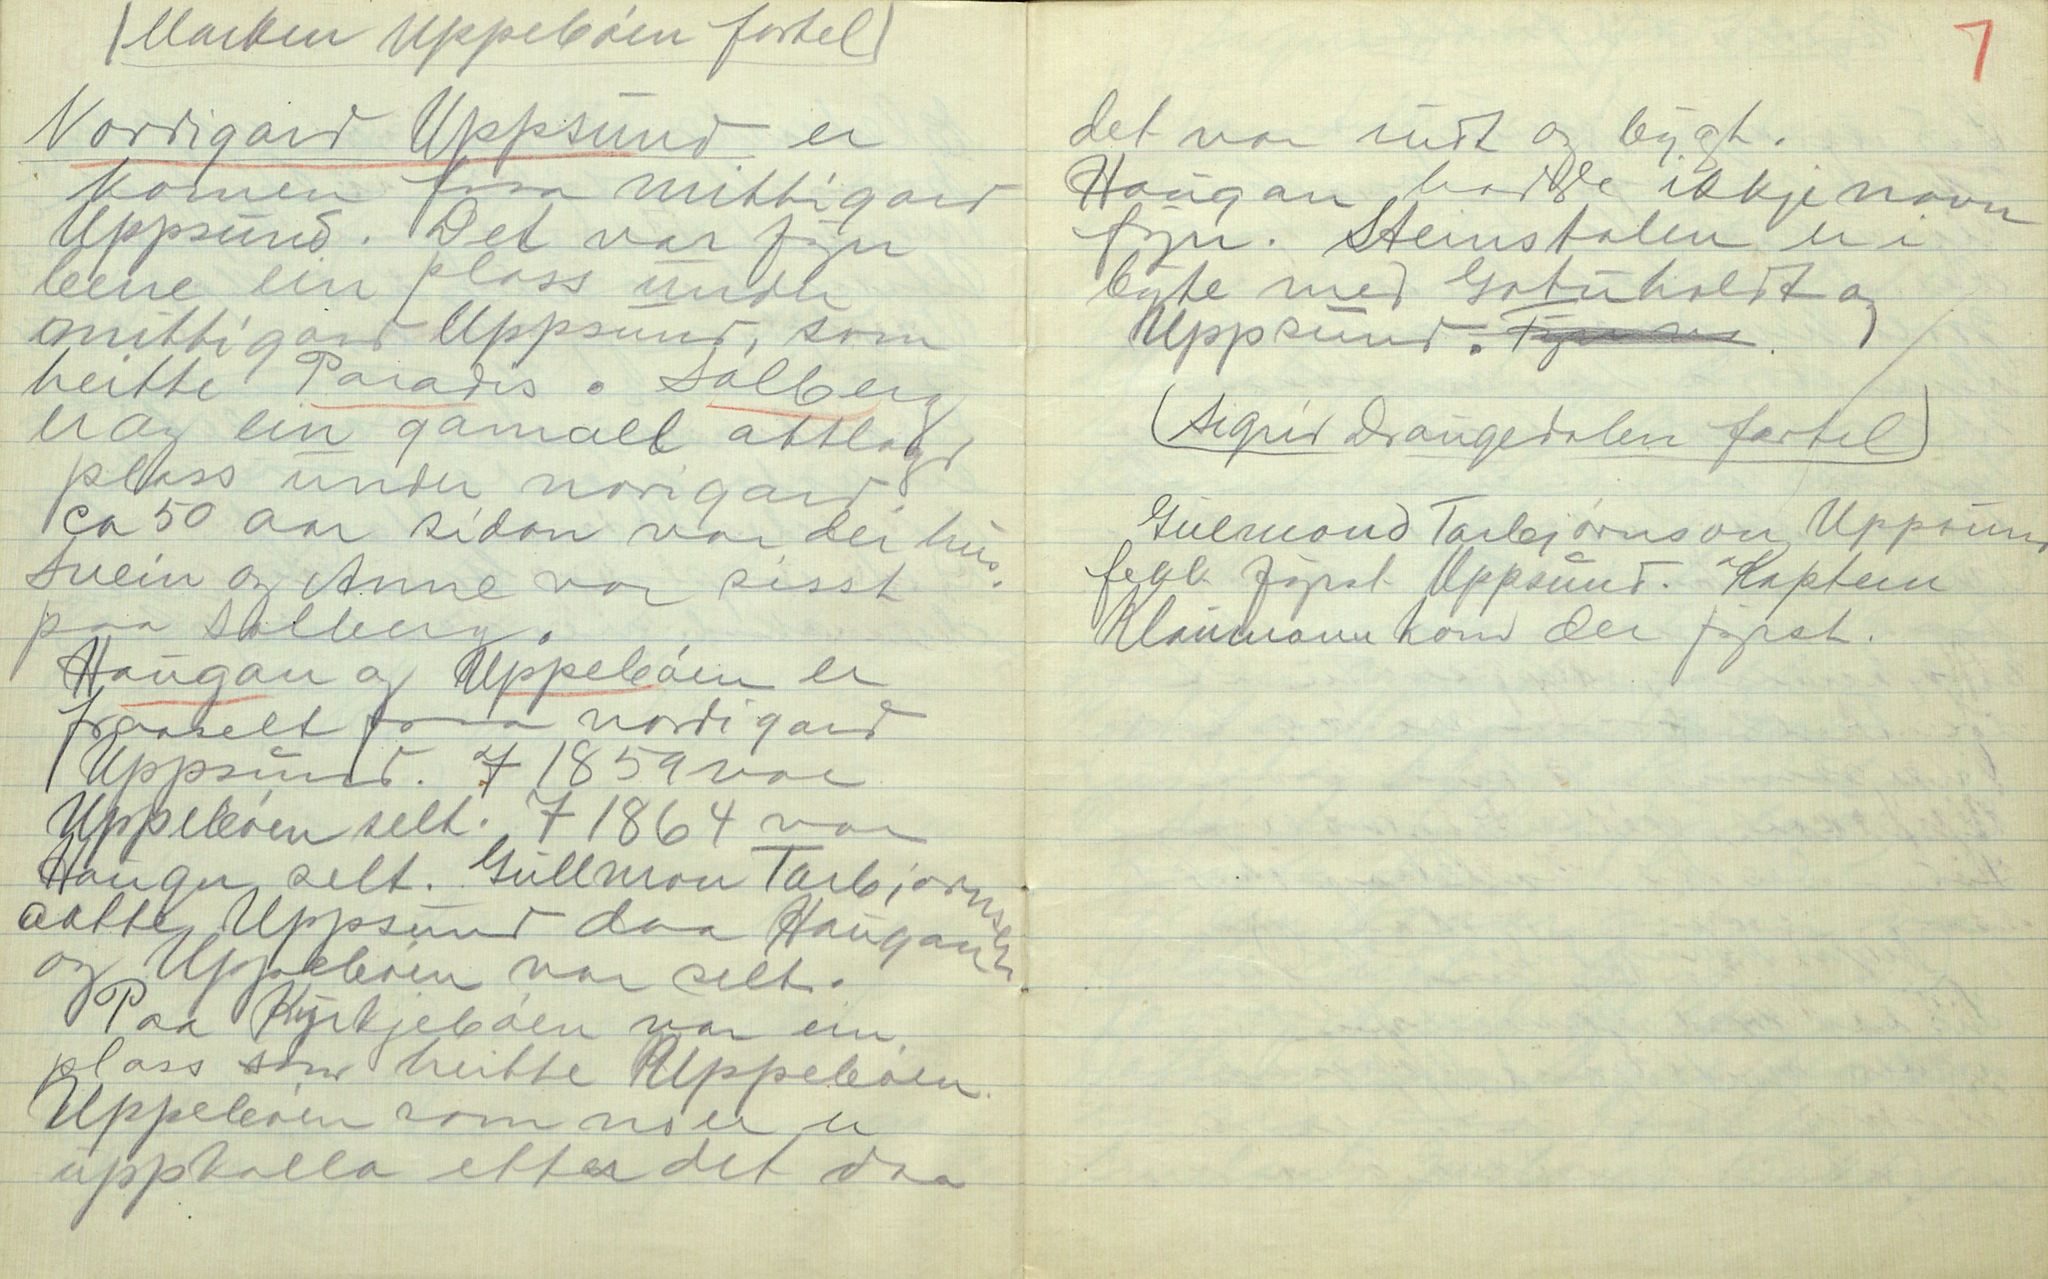 (Marken Uppebøen fortel)
Nordigard Uppsund er
komen fraa mittigard
Uppsund. Det var fyrr
bere ein plass under
mittigard Uppsund, som
heitte Paradis. Solberg
er og ein gamall attlagd
plass under norigard
ca 50 aar sidan var dei hus.
Svein og Anne var sisst
paa Solberg.
Haugan og Uppebøen er
fraaselt fraa nordigard
Uppsund. I 1859 var
Uppebøen selt. I 1864 var
Haugen selt. Gullmon Tarbjørnson
aatte Uppsund daa Haugan
og Uppebøen var selt.
Paa Kyrkjebøen var ein
plass som heitte Uppebøen.
Uppebøen som no er er
uppkalla etter det daa
7
det var rudt og bygt.
Haugan hadde ikkje navn
fyrr. Steinstalen er i
byte med Gotuholdt og
Uppsund.
(Sigrid Draugedalen fortel)
Gullmond Tarbjørnson Uppsund
fekk fyrst Uppsund. Kaptein
Klaumann kom der fyrst.